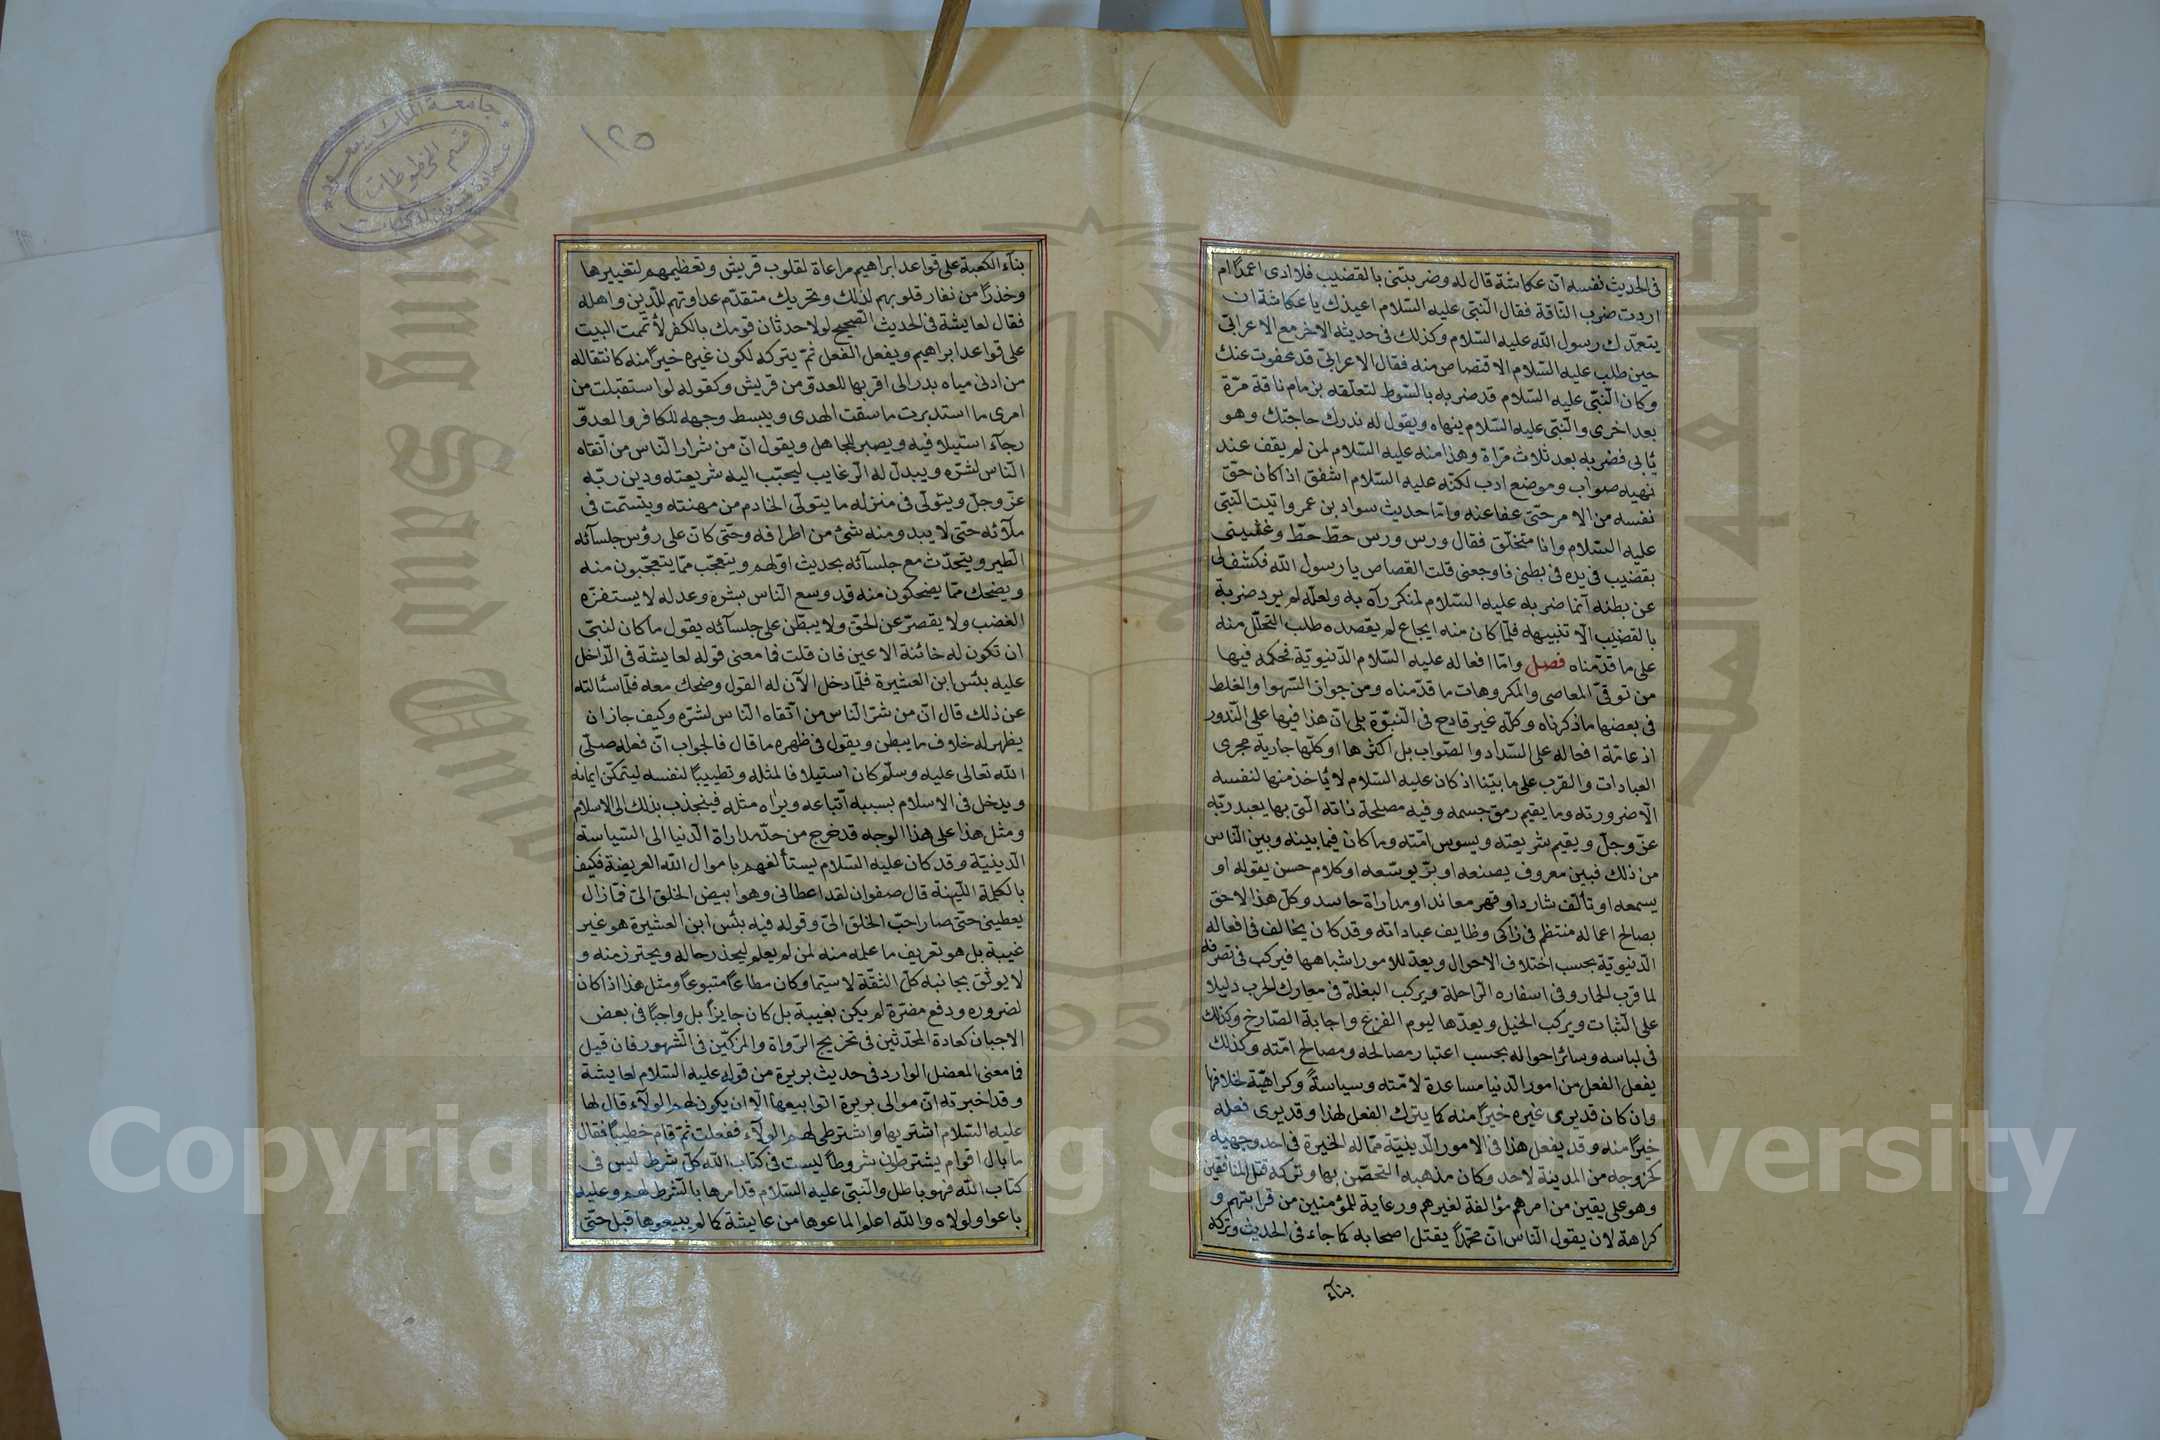 فى الحديث نفسه انّ عكاشة قال له وضربتنى بالقضيب فلا ادرى اعمدًا ام
اردت ضرب النّاقة فقال النّبى عليه السّلام اعيذك يا عكاشة ان
يتعمّدك رسول الله عليه السّلام وكذلك فى حديثه الاخر مع الاعرابىّ
حين طلب عليه السّلام الاقتصاص منه فقال الاعرابىّ قد عفوت عنك
وكان النّبى عليه السّلام قد ضربه بالسّوط لتعلّقه بزمام ناقة مرّة
بعد اخرى والنّبى عليه السّلام ينهاه ويقول له تدرك حاجتك وهو
يأبى فضربه بعد ثلاث مرّاة وهذا منه عليه السّلام لمن لم يقف عند
نهيه صواب وموضع ادب لكنّه عليه السّلام اشفق اذا كان حقّ
نفسه من الامر حتّى عفا عنه وامّا حديث سواد بن عمرو اتيت النّبى
عليه السّلام وانا متخلّق فقال ورس ورس حطّ حطّ وغشينى
بقضيب فى يده فى بطنى فاوجعنى قلت القصاص يا رسول الله فكشف لى
عن بطنه انّما ضربه عليه السّلام لمنكر رآه به ولعلّه لم يرد ضربة
بالقضيب الّا تنبيهه فلمّا كان منه ايجاع لم يقصده طلب التحلّل منه
على ما قدّمناه فصل وامّا افعاله عليه السّلام الدّنيويّة فحكمه فيها
من توقىّ المعاصى والمكروهات ما قدّمناه ومن جواز السّهوا والغلط
فى بعضها ما ذكرناه وكلّه غير قادح فى النّبوّة بلى انّ هذا فيها على النّدور
اذ عامّة افعاله على السّداد والصّواب بل اكثرها او كلّها جارية مجرى
العبادات والقرب على ما بيّنا اذ كان عليه السّلام لا يأخذ منها لنفسه
الّا ضرورته وما يقيم رمق جسمه وفيه مصلحة ذاته الّتى بها يعبد ربّه
عزّ وجلّ ويقيم شريعته ويسوس امّته وما كان فيما بينه وبين النّاس
من ذلك فبين معروف يصنعه او برّ يوسّعه او كلام حسن يقوله او
يسمعه او تألّف شارد او قهر معاند او مداراة حاسد وكلّ هذا لاحق
بصالح اعماله منتظم فى زاكى وظايف عباداته وقد كان يخالف فى افعاله
الدّنيويّة بحسب اختلاف الاحوال ويعدّ للامور اشباهها فيركب فى تصرفه
لما قرب الحمار وفى اسفاره الرّاحلة ويركب البغلة فى معارك الحرب دليلا
على الثّبات ويركب الخيل ويعدّها ليوم الفزع واجابة الصّارخ وكذلك
فى لباسه وسائر احواله بحسب اعتبار مصالحه ومصالح امّته وكذلك
يفعل الفعل من امور الدّنيا مساعدة لامّته وسياسةً وكراهيّة لخلافها
وان كان قد يرى غيره خيرًا منه كما يترك الفعل لهذا وقد يرى فعله
خيرًا منه وقد يفعل هذا فى الامور الدّينيّة ممّا له الخيرة فى احد وجهيه
كخروجه من المدينة لاحد وكان مذهبه التحصّن بها وتركه قتل المنافقين
وهو على يقين من امرهم مؤالفة لغيرهم ورعاية للمؤمنين من قرابتهم و
كراهة لان يقول النّاس انّ محمّدًا يقتل اصحابه كما جاء فى الحديث وتركه
بنآء
١٢٥
جامعة الملك سعود
قسم المخطوطات
بنآء الكعبة على قواعد ابراهيم مراعاة لقلوب قريش وتعظيمهم لتغييرها
وحذرًا من نفار قلوبهم لذلك وتحريك متقدّم عداوتهم للدّين واهله
فقال لعايشة فى الحديث الصّحيح لولا حدثان قومك بالكفر لأتممت البيت
على قواعد ابراهيم ويفعل الفعل ثمّ يتركه لكون غيره خيرًا منه كانتقاله
من ادنى مياه بدر الى اقربها للعدوّ من قريش وكقوله لو استقبلت من
امرى ما استدبرت ما سقت الهدى ويبسط وجهه للكافر والعدوّ
رجآء استيلافه ويصبر للجاهل ويقول انّ من شرار النّاس من اتّقاه
النّاس لشرّه ويبدلّ له الرّغايب ليحبّب اليه شريعته ودين ربّه
عزّ وجلّ ويتولّى فى منزله ما يتولّى الخادم من مهنته ويتسّمت فى
ملآئه حتّى لا يبدو منه شئ من اطرافه وحتّى كانّ على رؤس جلسآئه
الطّير ويتحدّث مع جلسآئه بحديث اوّلهم ويتعجّب ممّا يتعجّبون منه
ويضحك ممّا يضحكون منه قد وسع النّاس بشره وعدله لا يستفزّه
الغضب ولا يقصّر عن الحقّ ولا يبطّن على جلسآئه يقول ما كان لنبىّ
ان تكون له خائنة الاعين فان قلت فما معنى قوله لعايشة فى الدّاخل
عليه بئس ابن العشيرة فلمّا دخل الآن له القول وضحك معه فلمّا سئالته
عن ذلك قال انّ من شرّ النّاس من اتّقاه النّاس لشرّه وكيف جاز ان
يظهر له خلاف ما يبطن ويقول فى ظهره ما قال فالجواب انّ فعله صلّى
الله تعالى عليه وسلّم كان استيلافا لمثله وتطييبًا لنفسه ليتمكّن ايمانه
ويدخل فى الاسلام بسببه اتّباعه ويراه مثله فينجذب بذلك الى الاسلام
ومثل هذا على هذا الوجه قد خرج من حدّ مداراة الدّنيا الى السّياسة
الدّينيّة وقد كان عليه السّلام يستألفهم باموال الله العريضة فكيف
بالكلمة اللّينة قال صفوان لقد اعطانى وهو ابيض الخلق الىّ فمازال
يعطينى حتّى صار احبّ الخلق الىّ وقوله فيه بئس ابن العشيرة هو غير
غيبة بل هو تعريف ما علمه منه لمن لم يعلم ليحذر حاله ويحترز منه و
لا يوثق بجانبه كلّ الثقّة لا سيّما وكان مطاعًا متبوعًا ومثل هذا اذا كان
لضروره ودفع مضرّة لم يكن بغيبة بل كان جايزًا بل واجبًا فى بعض
الاحيان كعادة المحدّثين فى تخريج الرّواة والمزكّين فى الشّهور فان قيل
فما معنى المعضل الوارد فى حديث بريرة من قوله عليه السّلام لعايشة
وقد اخبرته انّ موالى بريرة ابوا بيعها الّا ان يكون لهم الولآء قال لها
عليه السّلام اشتريها واشترطى لهم الولآء ففعلت ثمّ قام خطيبًا فقال
ما بال اقوام يشترطون شروطًا ليست فى كتاب الله كلّ شرط ليس فى
كتاب الله فهو باطل والنّبى عليه السّلام قد امرها بالشّرط لهم وعليه
باعوا ولولاه والله اعلم الما عوها من عايشة كما لم يبيعوها قبل حتّى
Copyright © King Saud University
1957